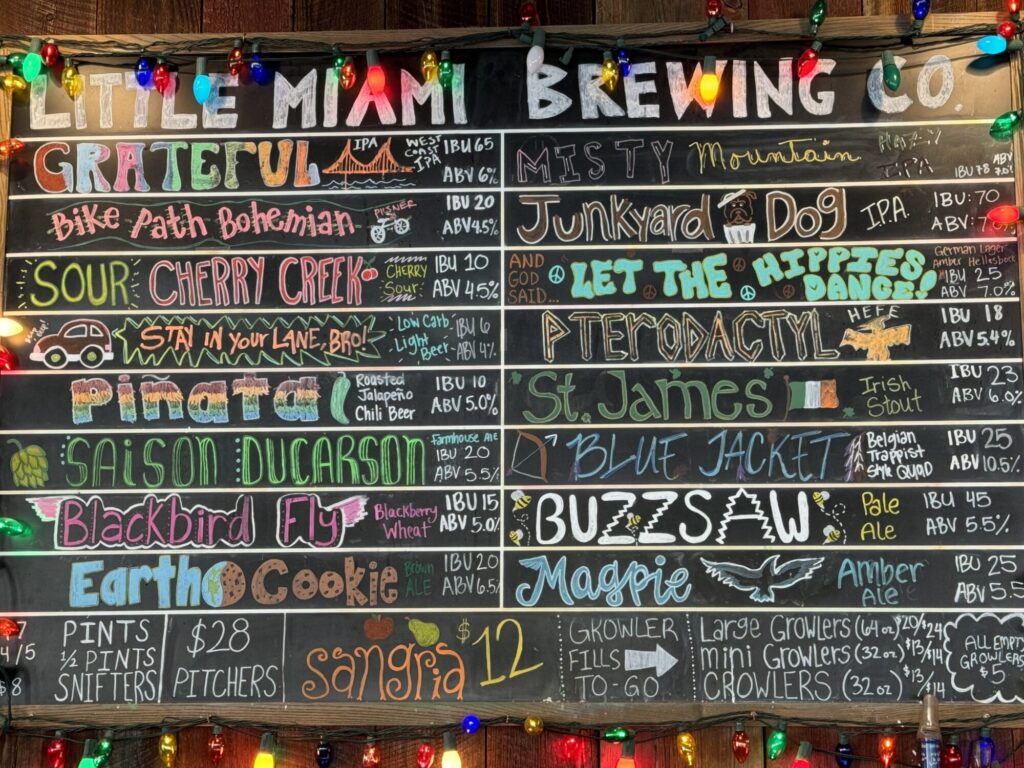 LITTLE MIAMI BREWING CO.
GRATEFUL IPA WEST COAST IPA IBU 65 ABV 6%
Bike Path Bohemian PILSNER IBU 20 ABV 4.5%
SOUR CHERRY CREEK CHERRY Sour IBU 10 ABV 4.5%
STAY IN YOUR LANE, BRO! Low Carb Light Beer IBU 6 ABV 4%
Piñata Roasted Jalapeño Chili Beer IBU 10 ABV 5.0%
SAISON DUCARSON Farmhouse Ale IBU 20 ABV 5.5%
Blackbird Fly Blackberry Wheat IBU 15 ABV 5.0%
Earth Cookie Brown ALE IBU 20 ABV 6.5%
MISTY Mountain HAZY IPA IBU 78 ABV 7.0%
Junkyard Dog IPA IBU: 70 ABV:
AND GOD SAID... LET THE HIPPIES DANCE! German Lager Amber Hellesbock IBU 25 ABV 7.0%
PTERODACTYL HEFE IBU 18 ABV 5.4%
St. James Irish Stout IBU 23 ABV 6.0%
BLUE JACKET Belgian Trappist Style QUAD IBU 25 ABV 10.5%
BUZZSAW Pale Ale IBU 45 ABV 5.5%
Magpie Amber Ale IBU 25 ABV 5.5
7 PINTS
4/5 ½ PINTS
$8 SNIFTERS
$28
PITCHERS
Sangria $12
GROWLER
FILLS
TO-GO
Large Growlers (64 oz) $20/$24
mini Growlers (32 oz) $13/$14
CROWLERS (32 oz) $13/$14
ALL EMPTY
GROWLERS
$5